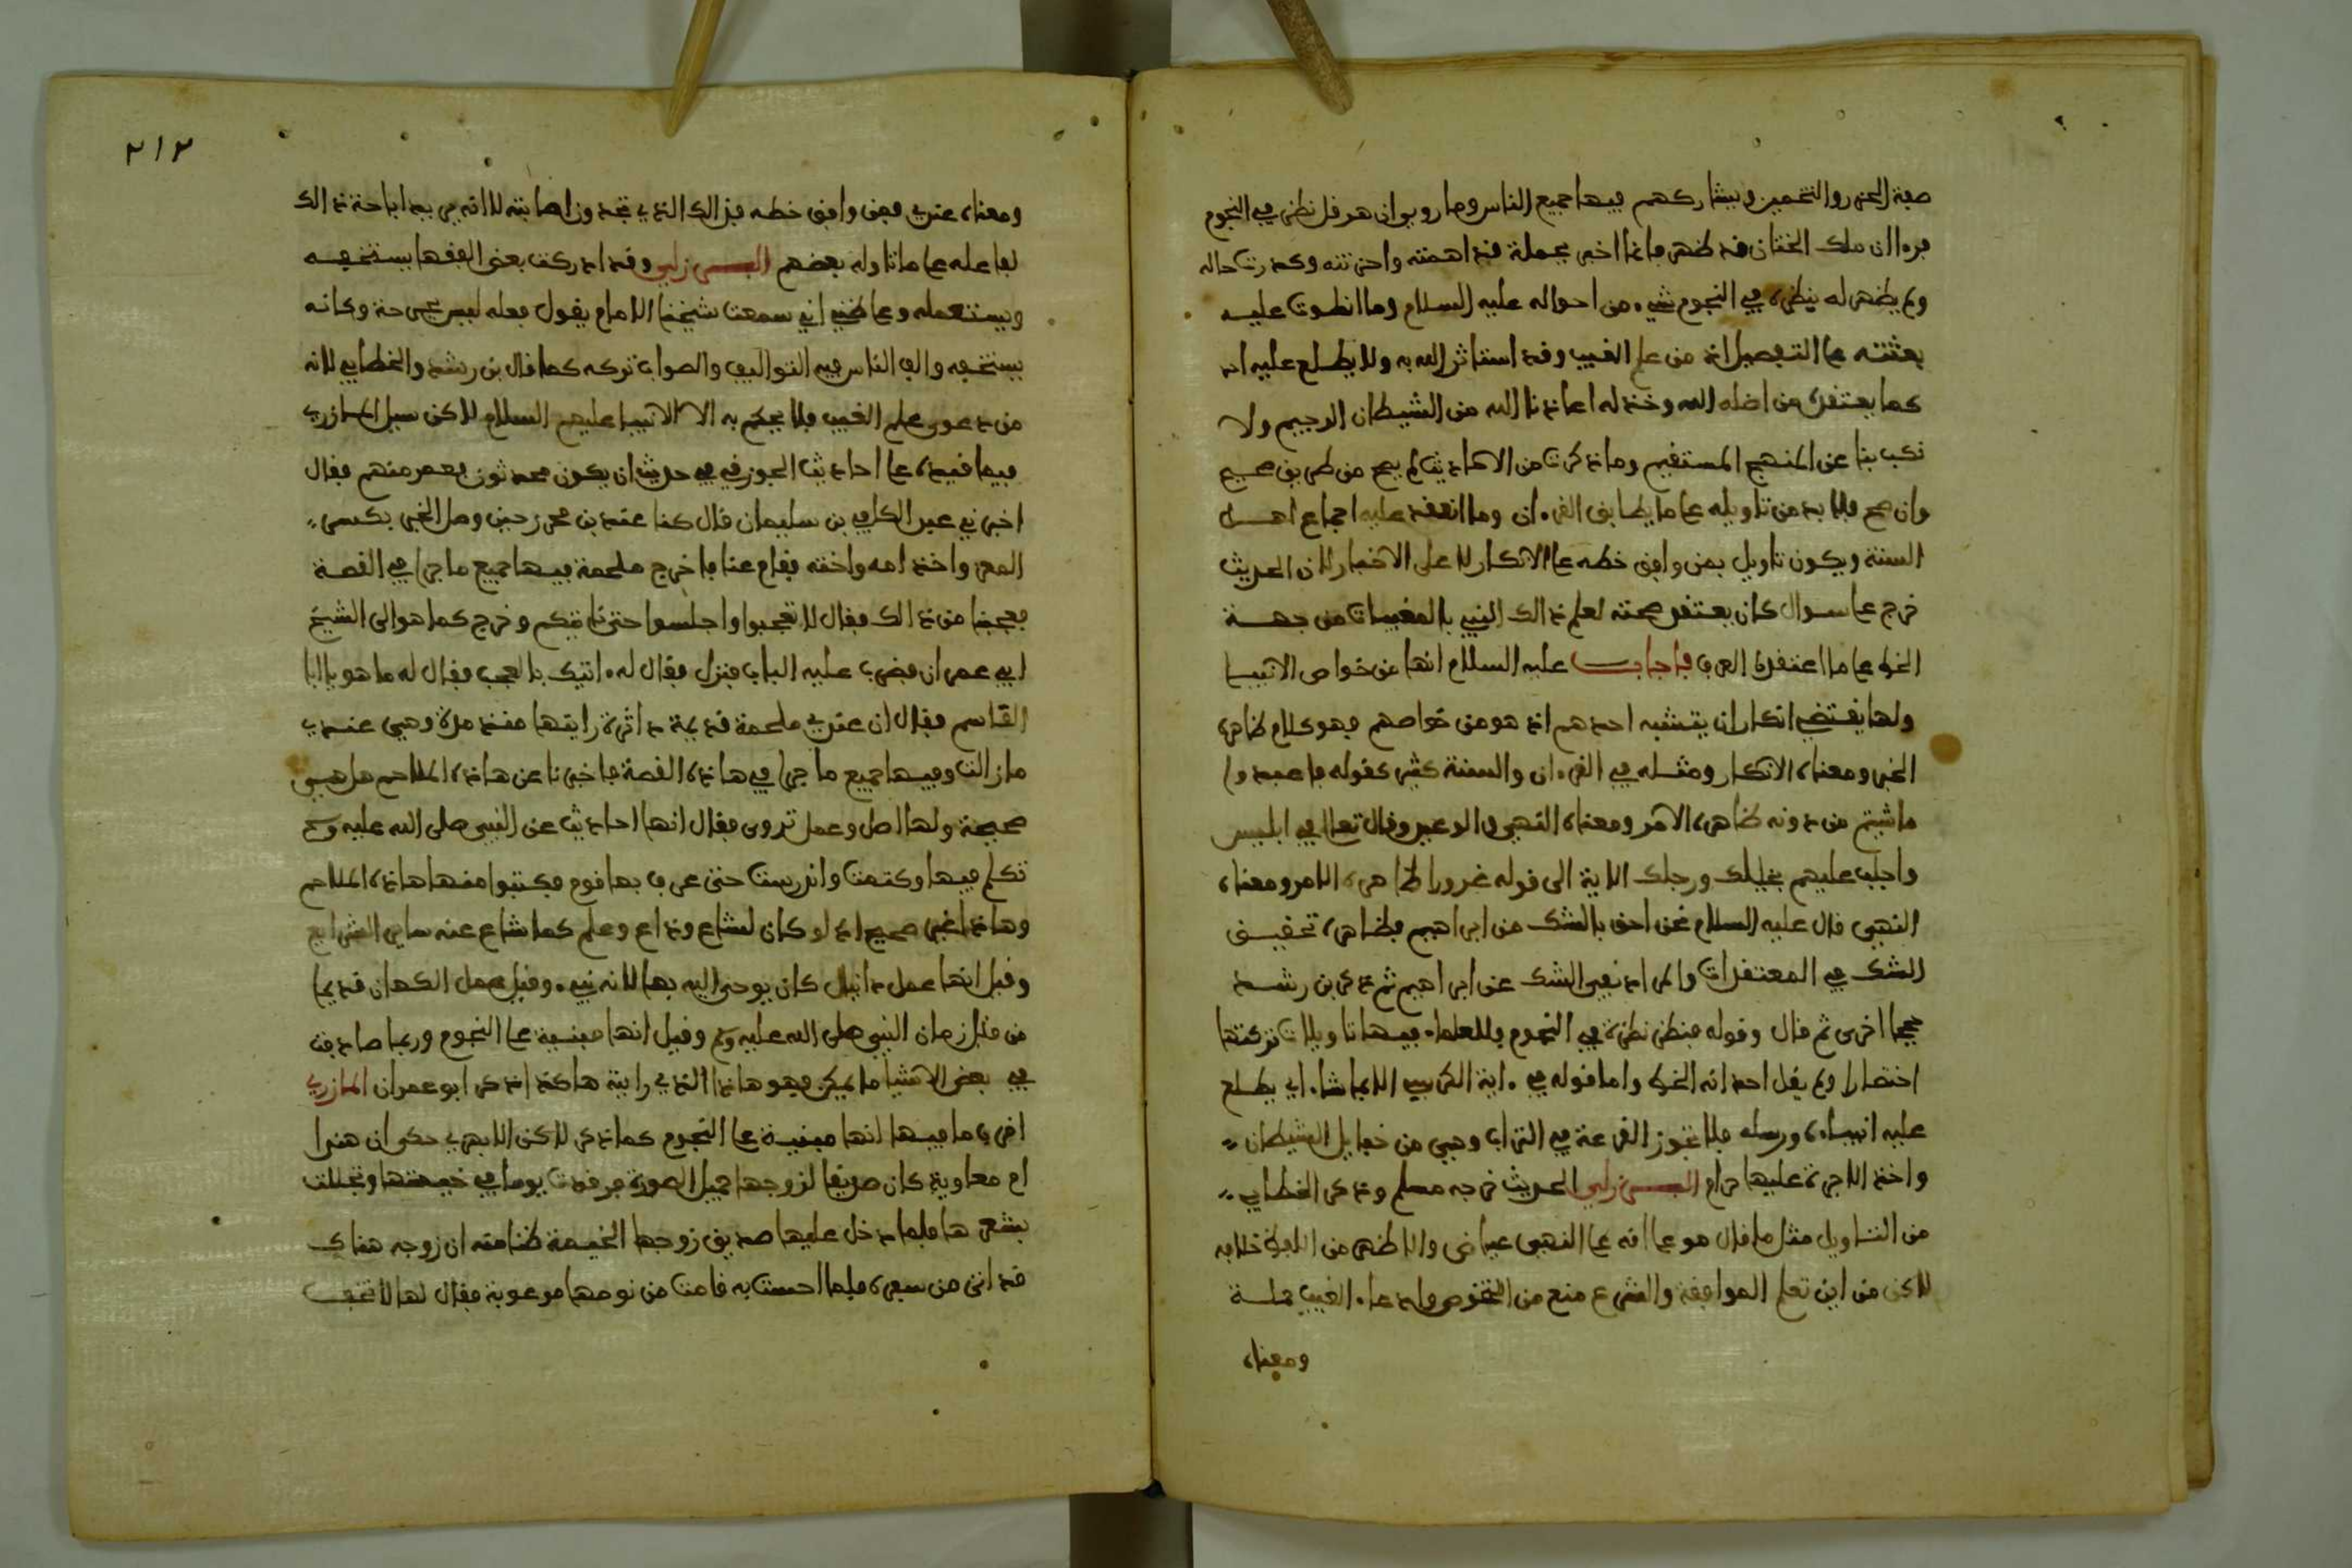 صفة الحزر والتخمين ويشاركهم فيها جميع الناس وما روي ان هرقل نظر في النجوم
فرءا ان ملك الختان قد ظهر فانما اخبر بجملة قد اهمته واحزنته وكدرت حاله
ولم يظهر له بنظره في النجوم شيء من احواله عليه السلام وما انطوت عليه
بعثته على التفصيل اذ من علم الغيب وقد استاثر الله به ولا يطلع عليه احد
كما يعتقد من اضله الله وخذله اعاذنا الله من الشيطان الرجيم ولا
نكب بنا عن المنهج المستقيم وما ذكرت من الاحاديث لم يصح من طريق صحيح
وان صح فلا بد من تاويله على ما يطابق القرءان وما انعقد عليه اجماع اهل
السنة ويكون تاويل بمن وافق خطه على الانكار لا على الاخبار لان الحديث
خرج على سوال كان يعتقد صحته لعلم ذالك النبي بالمغيبات من جهة
الخط على ما اعتقده العرب فاجاب عليه السلام انها من خواص الانبيا
ولها يقتضي انكار ان يتشبه احدهم اذ هو من خواصهم فهو كلام ظاهره
الخبر ومعناه الانكار ومثله في القرءان والسنة كثير كقوله فاعبدوا
ما شيتم من دونه ظاهره الامر ومعناه النهي والوعيد وقال تعالى في ابليس
واجلب عليهم بخيلك ورجلك الاية الى قوله غرورا ظاهره الامر ومعناه
النهي قال عليه السلام نحن احق بالشك من ابراهيم فظاهره تحقيق
الشك في المعتقدات والمراد نفي الشك عن ابراهيم ثم ذكر بن رشد
حججا اخرى ثم قال وقوله فنظر نظرة في النجوم فللعلماء فيها تاويلات تركتها
اختصارا ولم يقل احد انه الخط واما قوله في ءاية الكرسي الا بما شاء اي يطلع
عليه انبياءه ورسله فلا تجوز القرعة في التراب وهي من خبايل الشيطان
واخذ الاجرة عليها حرام البرزلي الحديث خرجه مسلم وذكر الخطابي
من التاويل مثل ما قال هو على انه على النهي عياض والاظهر من اللفظ خلافه
لاكن من اين تعلم الموافقة والشرع منع من التخرص وادعاء الغيب جملة
ومعناه
٢١٢
ومعناه عندي فمن وافق خطه فذالك الذي تجدون اصابته لا انه يريد اباحة ذالك
لفاعله على ما تاوله بعضهم البرزلي وقد ادركت بعض الفقها يستخفه
ويستعمله وعلى ظني اني سمعت شيخنا الامام يقول فعله ليس بجرحة وكانه
يستخفه والف الناس فيه التواليف والصواب تركه كما قال بن رشد والخطابي لانه
من دعوى علم الغيب فلا يحكم به الا الانبيا عليهم السلام لاكن سيل المازري
فيما قيده على احاديث الجوزقي في حديث ان يكون محدثون فعمر منهم فقال
اخبرني عبد الكافي بن سليمان قال كنا عند بن محرز حين وصل الخبر بكسرة
المعز واخذ امه واخته فقام عنا فاخرج ملحمة فيها جميع ما جرا في القصة
فعجبنا من ذالك فقال لا تعجبوا واجلسوا حتى ناتيكم وخرج كما هو الى الشيخ
ابي عمران فضرب عليه الباب فنزل فقال له اتيتك بالعجب فقال له ما هو يا ابا
القاسم فقال ان عندي ملحمة قديمة داثرة رايتها منذ مدة وهي عندي
ما زالت وفيها جميع ما جرا في هاذه القصة فاخبرنا عن هاذه الملاحم هل هي
صحيحة ولها اصل وعمل تروى فقال انها احاديث عن النبي صلى الله عليه وسلم
تكلم فيها وكتمت واندرست حتى عرف بها قوم فكتبوا منها هاذه الملاحم
وهاذا غير صحيح اذ لو كان لشاع وذاع وعلم كما شاع عنه ساير الشرايع
وقيل انها عمل دانيال كان يوحى اليه بها لانه نبيء وقيل عمل الكهان قديما
من قبل زمان النبي صلى الله عليه وسلم وقيل انها مبنية على النجوم وربما صادفت
في بعض الاشيا ما يمكن فهو هاذا الذي رايته هاكذا ذكر ابو عمران المازري
اقرب ما فيها انها مبنية على النجوم كما ذكر لاكن الابهري حكى ان هندا
ام معاوية كان صديقا لزوجها جميل الصورة فرقدت يوما في خيمتها وتجللت
بشعرها فلما دخل عليها صديق زوجها الخيمة ظنا منه ان زوجه هناك
قد اتى من سفره فلما احست به قامت من نومها مرعوبة فقال لها لا تخف